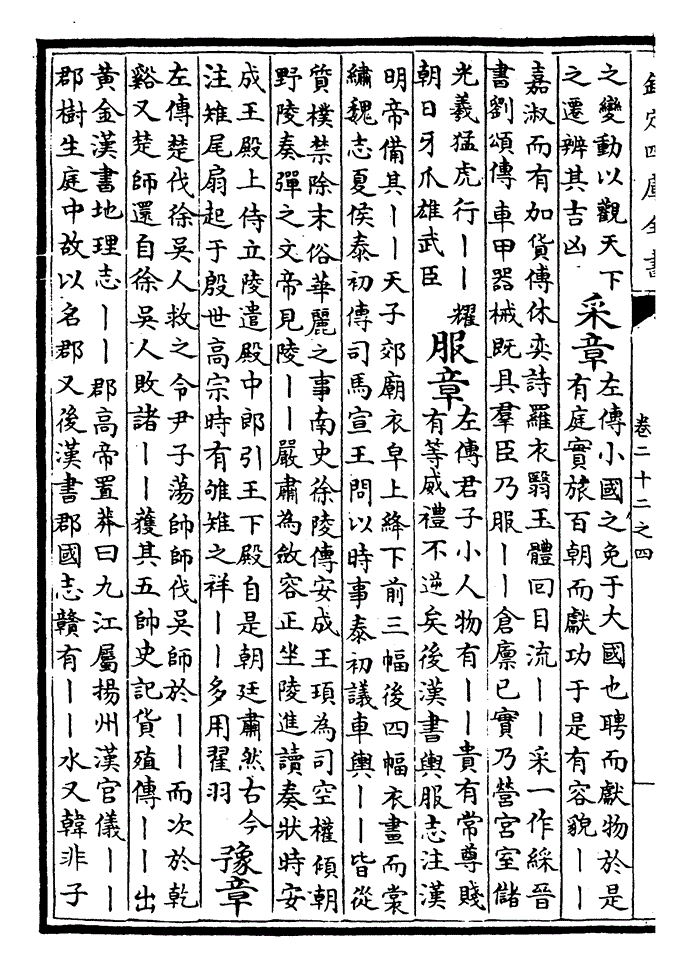 欽定四庫全書
卷二十二之四
之變動以觀天下
之遷辨其吉凶
采章
左傳小國之免于大國也聘而獻物於是
有庭實旅百朝而獻功于是有容貌丨丨
嘉淑而有加貨傳休奕詩羅衣翳玉體回目流丨丨采一作綵晉
書劉頌傳車甲器械既具羣臣乃服丨丨倉廪已實乃營宮室儲
光義猛虎行丨丨耀
朝日牙爪雄武臣
服章
左傳君子小人物有丨丨貴有常尊賤
有等威禮不逆矣後漢書輿服志注漢
明帝備其丨丨天子郊廟衣皁上絳下前三幅後四幅衣畫而裳
繡魏志夏侯泰初傳司馬宣王問以時事泰初議車輿丨丨皆從
質樸禁除末俗華麗之事南史徐陵傳安成王頊為司空權傾朝
野陵奏彈之文帝見陵丨丨嚴肅為斂容正坐陵進讀奏狀時安
成王殿上侍立陵遣殿中郎引王下殿自是朝廷肅然古今
注雉尾扇起于殷世高宗時有雊雉之祥丨丨多用翟羽
豫章
左傳楚伐徐吳人救之令尹子蕩帥師伐吳師於丨丨而次於乾
谿又楚師還自徐吳人敗諸丨丨獲其五帥史記貨殖傳丨丨出
黃金漢書地理志丨丨郡高帝置莽曰九江屬揚州漢官儀丨丨
郡樹生庭中故以名郡又後漢書郡國志贛有丨丨水又韓非子